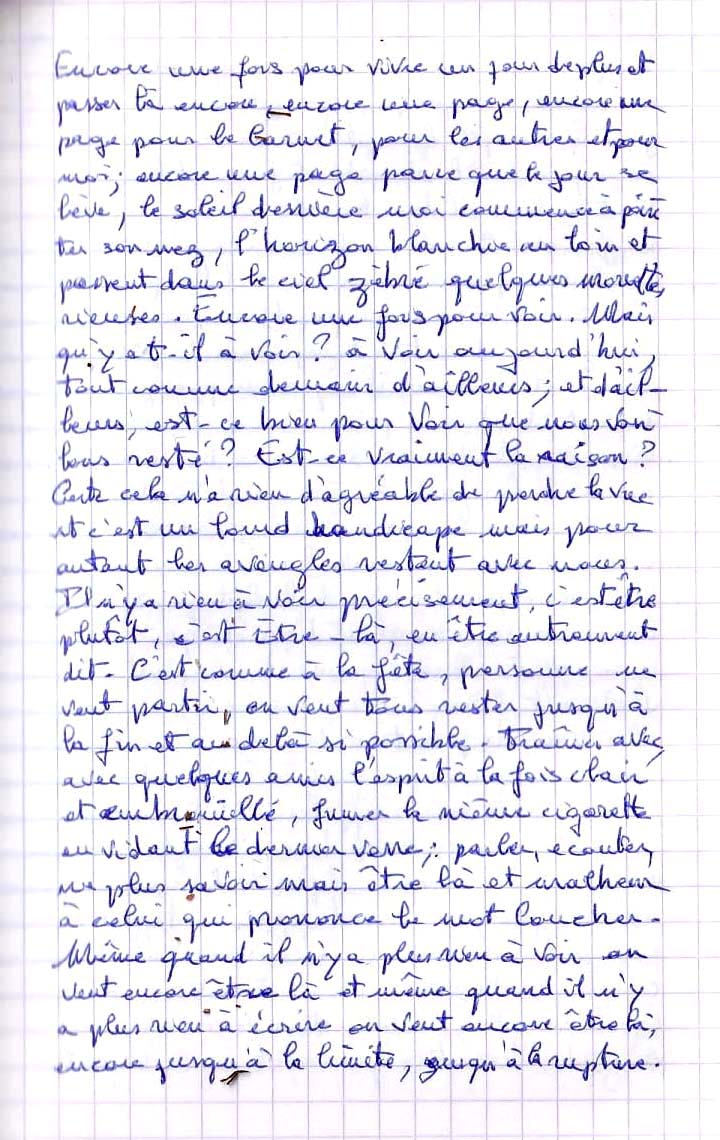 Encore une fois pour vivre un jour de plus et
passer là encore, encore une page, encore une
page pour le carnet, pour les autres et pour
moi; encore une page parce que le jour se
lève, le soleil derrière moi commence à poin
ter son nez, l'horizon blanchie au loin et
passent dans le ciel zébré quelques mouettes
rieuses. Encore une fois pour voir. Mais
qu'y a t-il à voir ? à voir aujourd'hui,
tout comme demain d'ailleurs; et d'ail-
leurs, est-ce bien pour voir que nous voulons
tous resté ? Est-ce vraiment la raison ?
Certe cela n'a rien d'agréable de perdre la vue
et c'est un lourd handicape mais pour
autant les aveugles restent avec nous.
Il n'y a rien à voir précisement, c'est être
plutôt, c'est Être-là, en être autrement
dit. C'est comme à la fête, personne ne
veut partir, on veut tous rester jusqu'à
la fin et au delà si possible. Trainer avec,
avec quelques amis l'esprit à la fois clair
et embrouillé, fumer la même cigarette
en vidant le dernier verre; parler, écouter,
ne plus savoir mais être là et malheur
à celui qui prononce le mot coucher.
Même quand il n'y a plus rien à voir on
veut encore être là et même quand il n'y
a plus rien à écrire on veut encore être là,
encore jusqu'à la limite, jusqu'à la rupture.